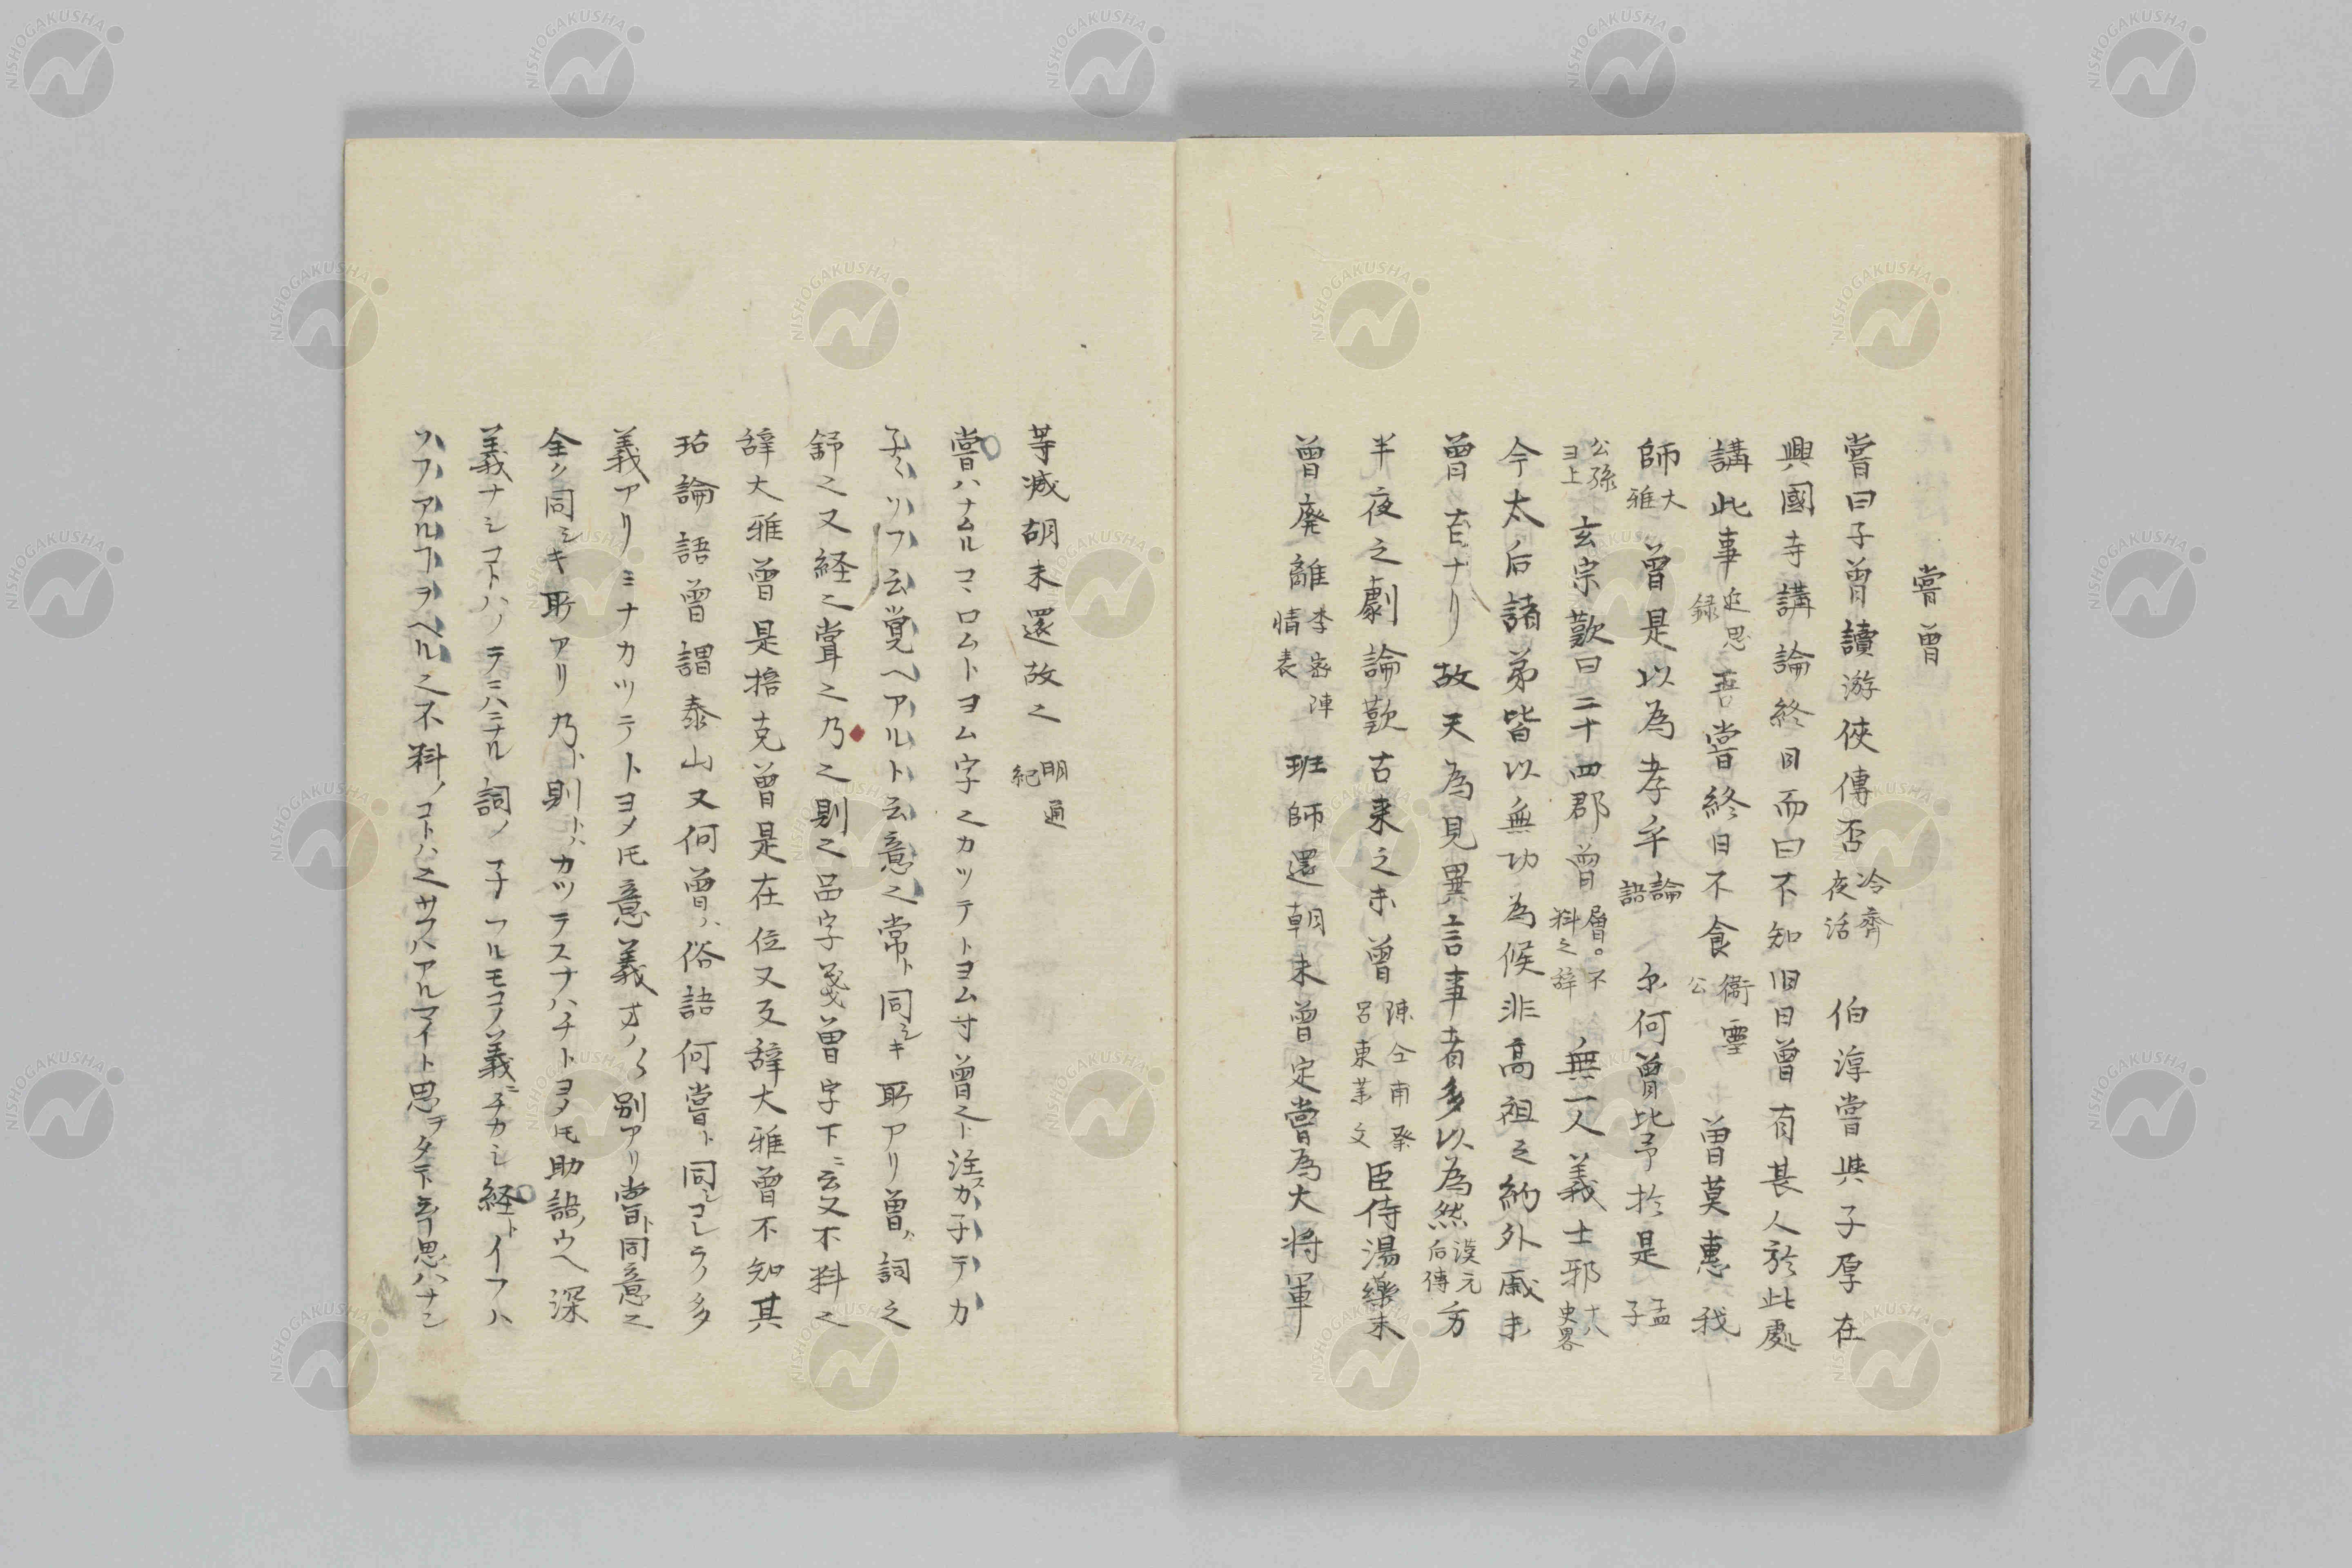 嘗曽
嘗曰子曽讀游俠傳否冷齊夜話 伯淳嘗與子厚在
興國寺講論終日而曰不知旧日曽有甚人於此處
講此事追思録 吾嘗終日不食衞靈公 曽莫惠我
師大雅 曽是以為孝乎論語 尓何曽比予於是孟子
公孫丑上 玄宗歎曰二十四郡曽層。不料之辞 無一人義士邪十八史畧
今太后諸弟皆以無功為候非高祖之約外戚未
曽有ナリ故天為見異言事者多以為然漢元后傳 方
半夜之劇論歎古来之未曽陳仝甫祭呂東莱文 臣侍湯藥未
曽廃離李密陳情表 班師還朝未曽定嘗為大将軍
等滅胡未還故之明通紀
嘗ハナムルコヽロムトヨム字之カツテトヨム寸曽之ト注スカ子テカ
子〻ソフ云覚ヘアルト云意之常ト同シキ所アリ曽ハ詞之
舒之又経之嘗之乃之則之呂字箋曽字下ニ云又不料之
辞大雅曽是掊克曽是在位又反辞大雅曽不知其
玷論語曽謂泰山又何曽ハ俗語何嘗ト同シコレラノ多
義アリミナカツテトヨメ𪜈意義オノ〱別アリ嘗ト同意之
全ク同シキ所アリ乃ト則トハカツテスナハチトヨメ𪜈助語ノウヘ深
義ナシコトハノテニハニナル詞ノ子フルモコノ義ニチカシ経トイフハ
ソフアルヿヲヘル之不料ノコトハ之サフハアルマイト思フタヿ云フ思ハナシ